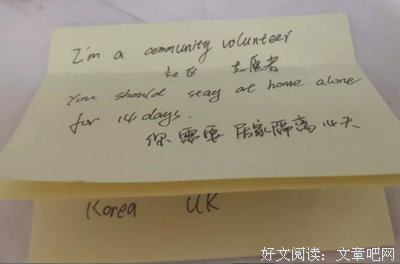 I'm a community volunteer
社区 志愿者
You should stay at home alone
for 14 days.
你需要居家隔离14天
Korea UK
好文阅读：文章吧网